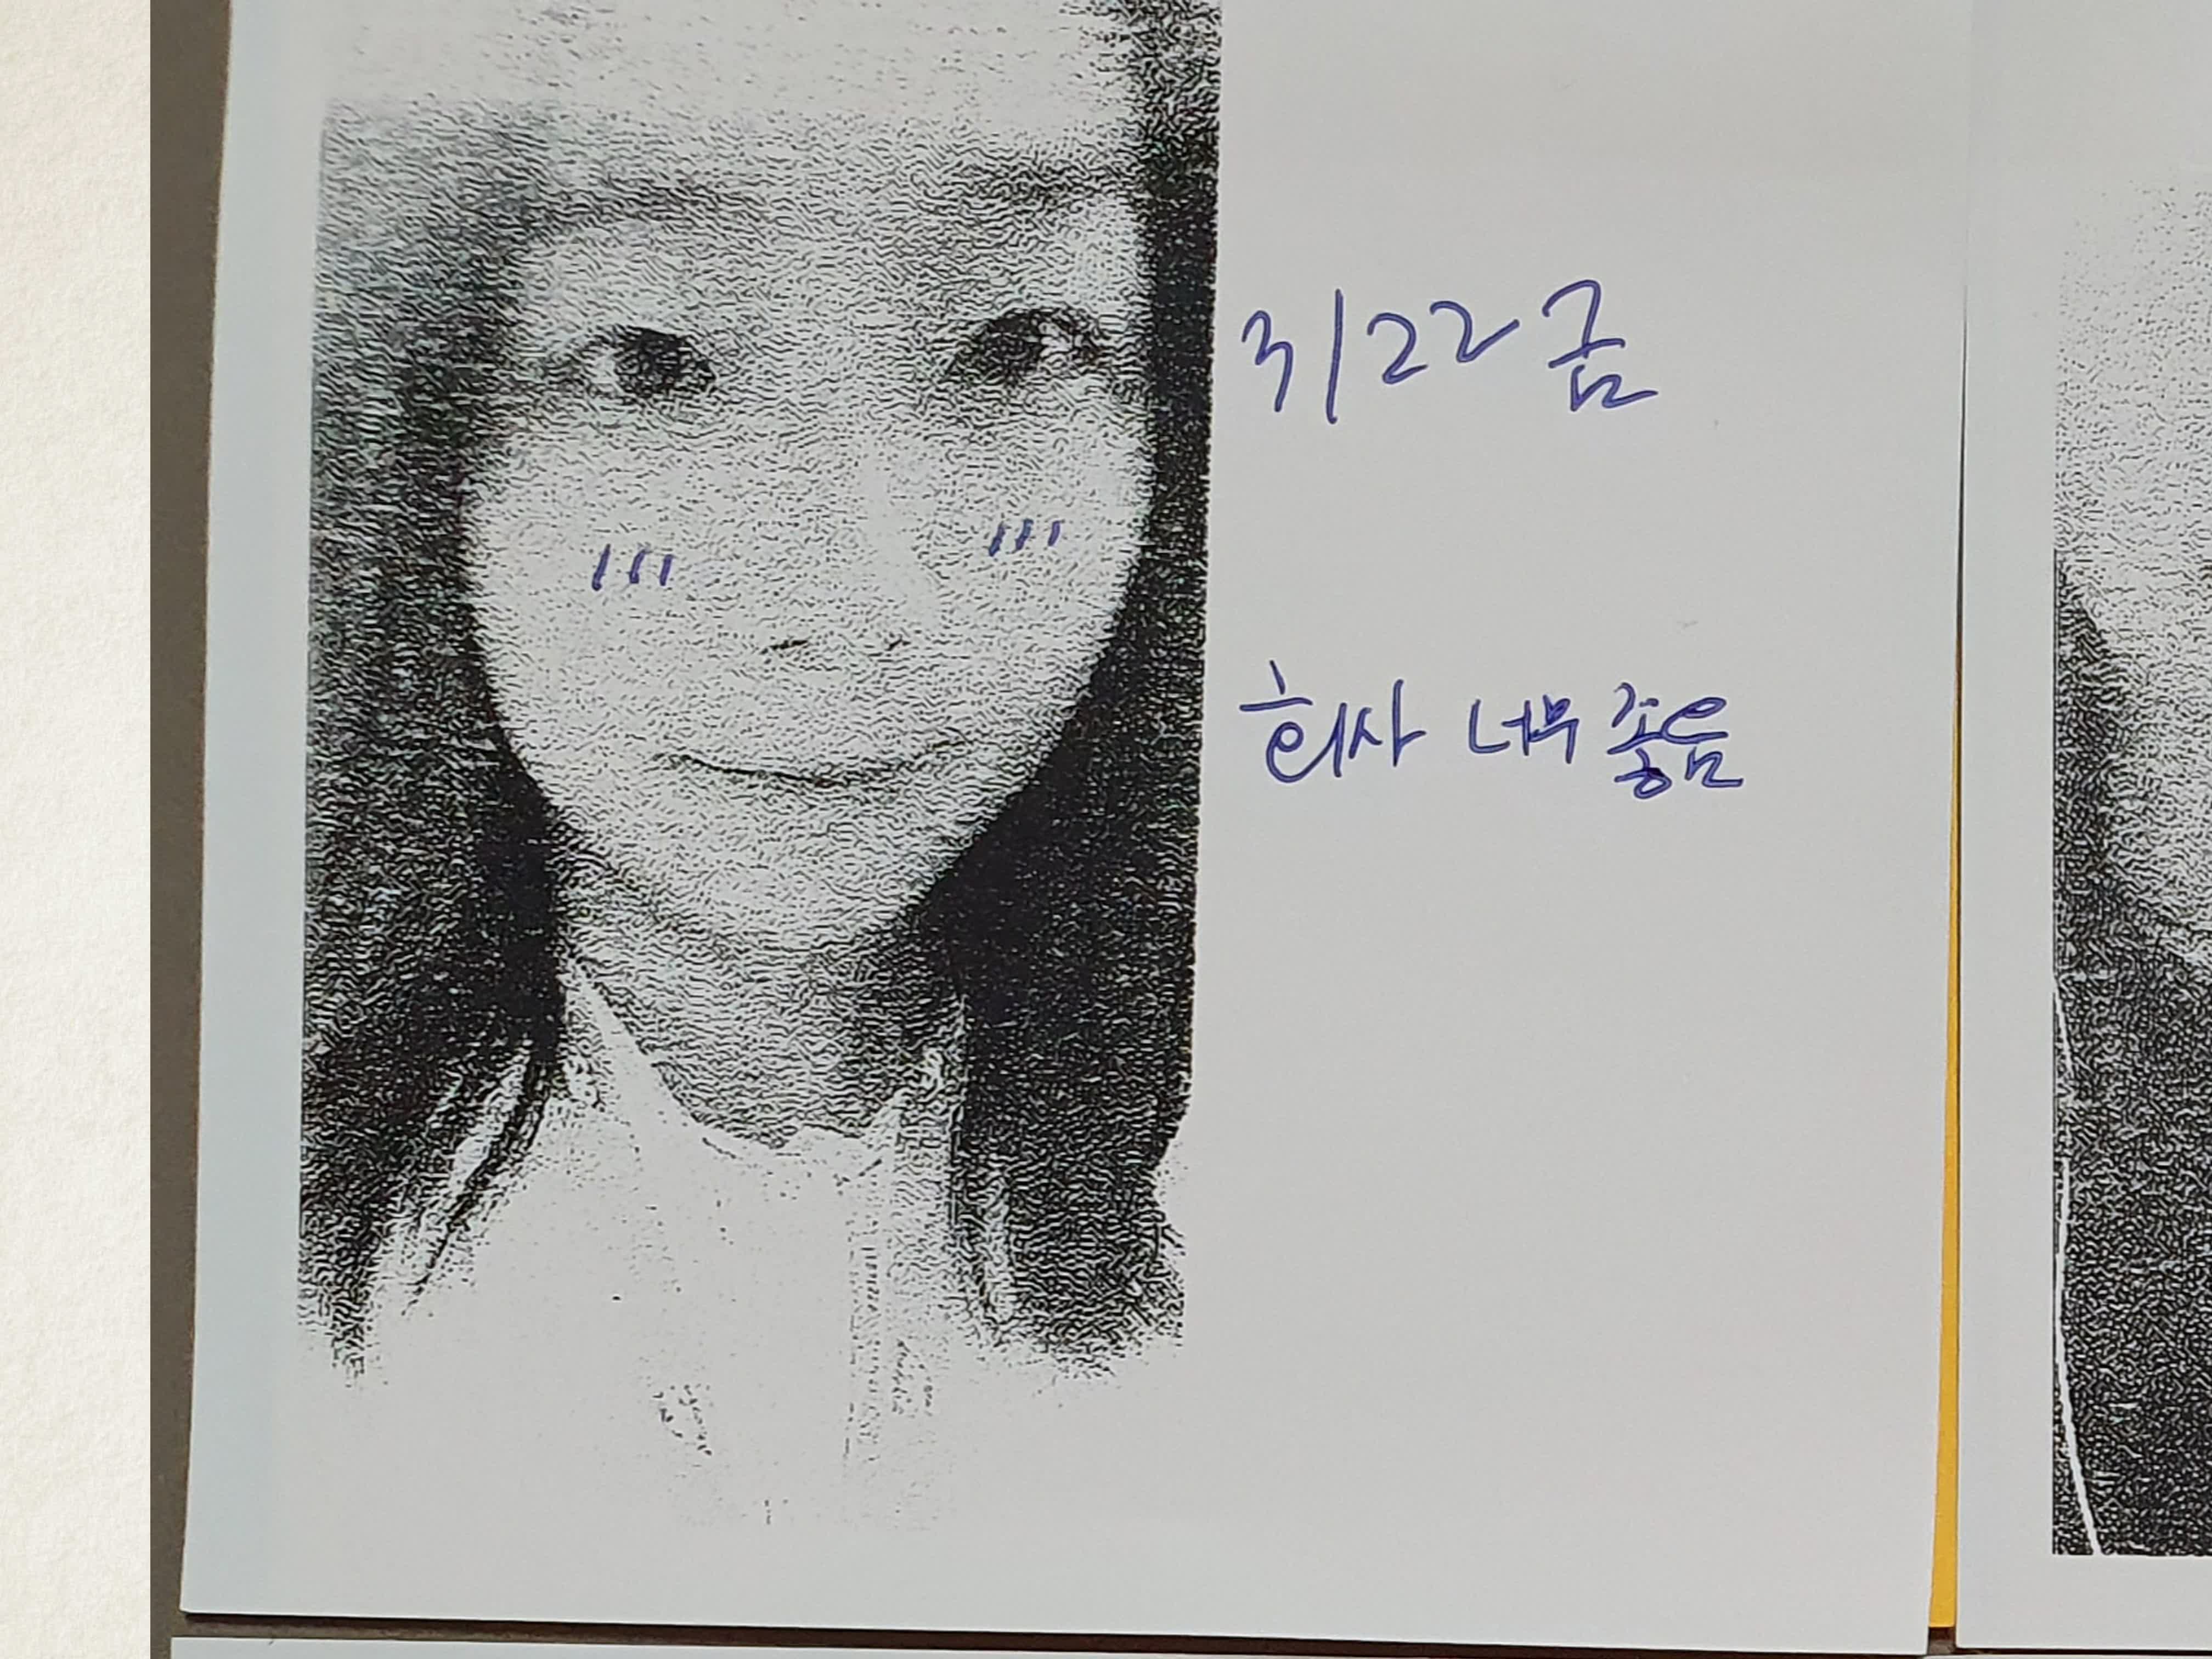 3/22 금
회사 너무 좋음